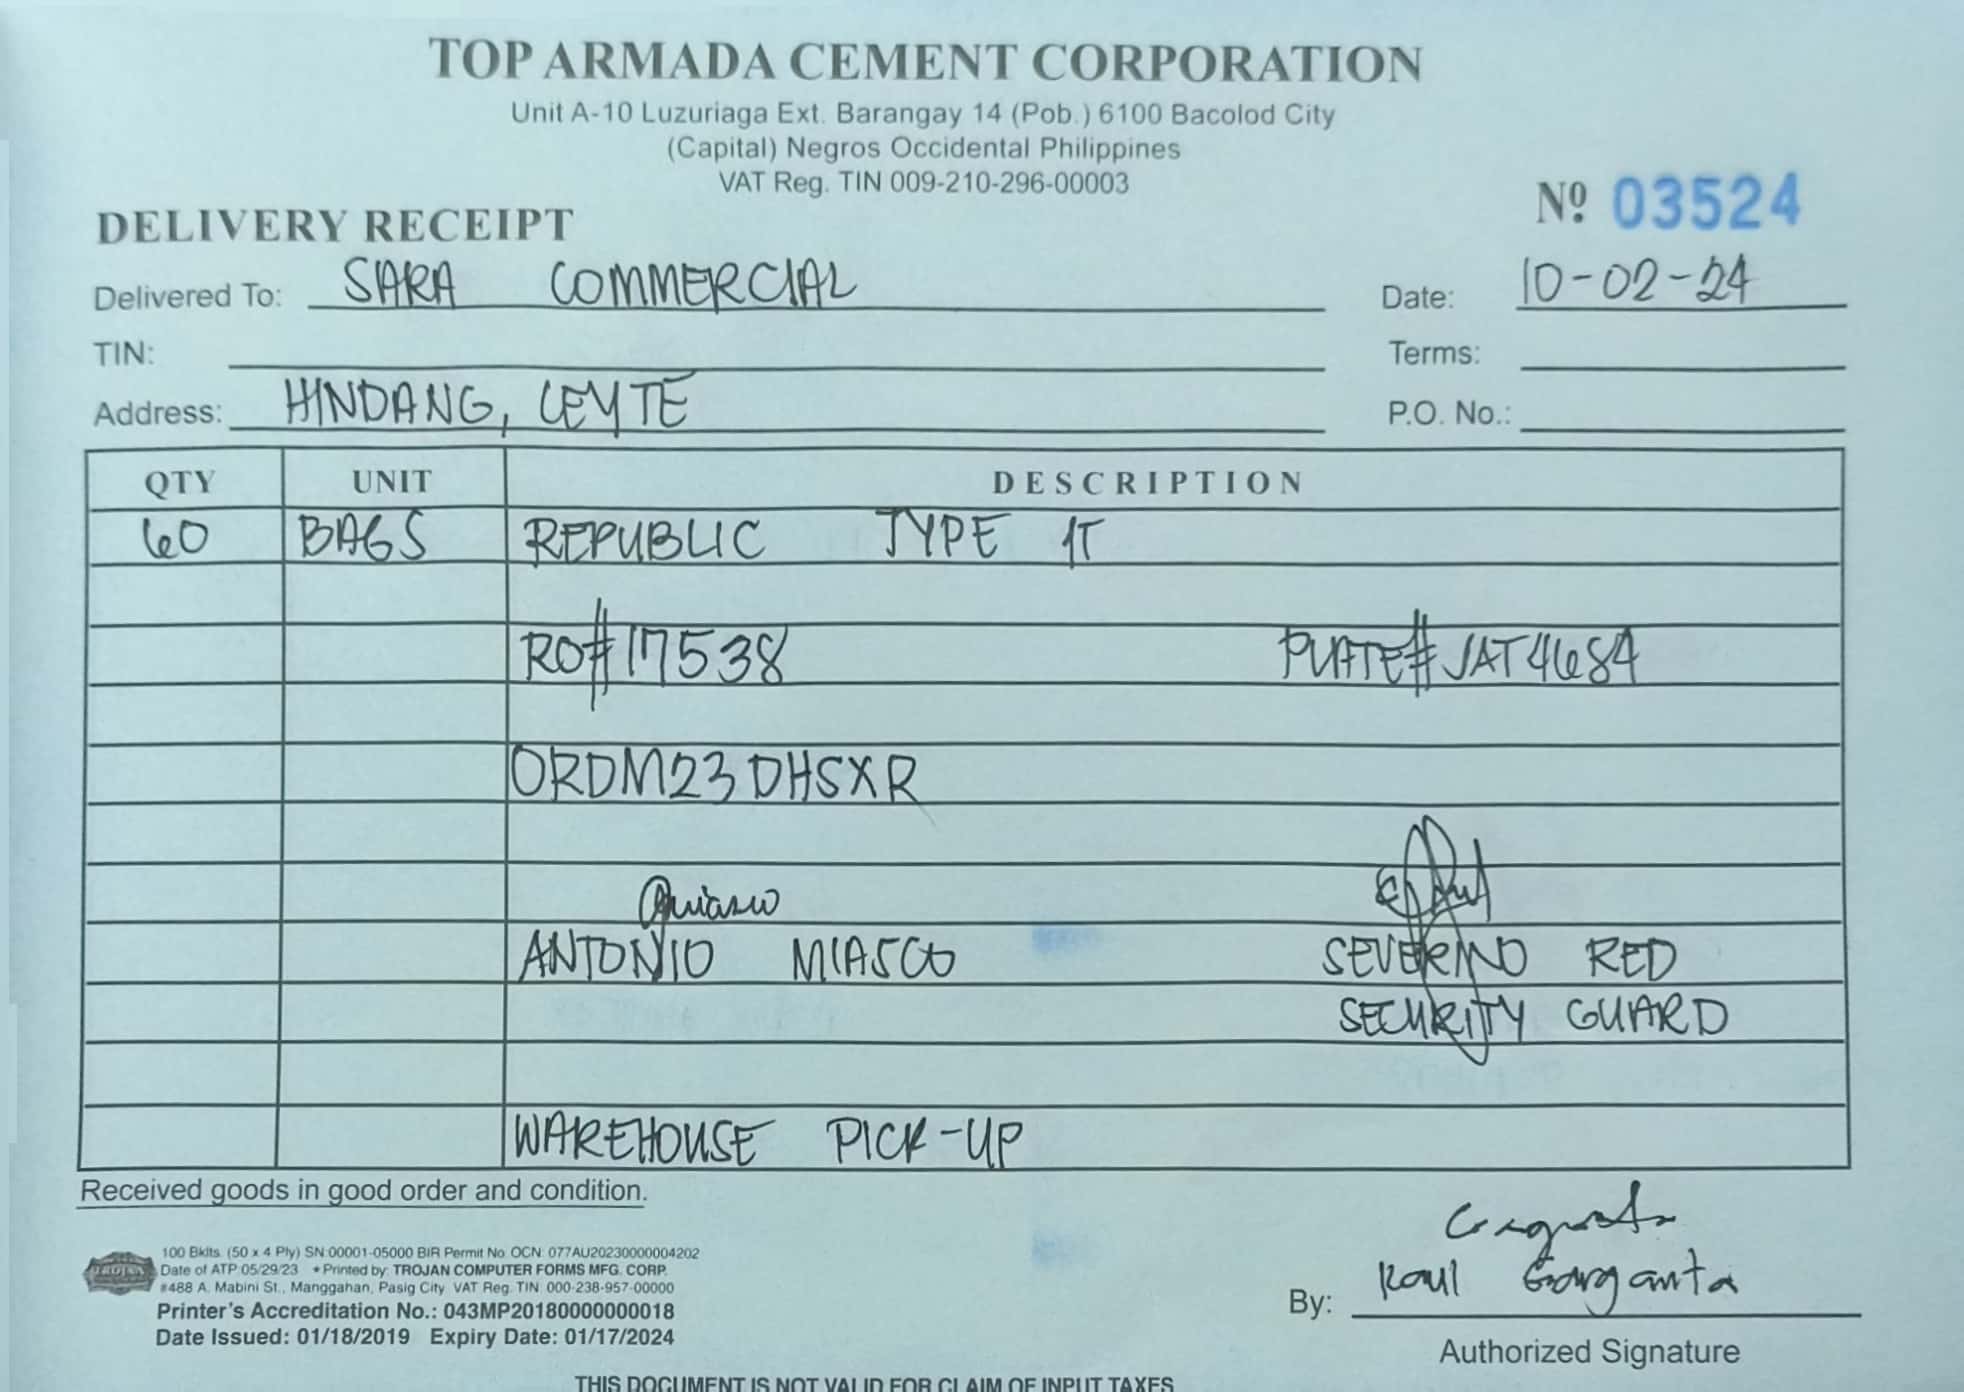 TOP ARMADA CEMENT CORPORATION
Unit A-10 Luzuriaga Ext. Barangay 14 (Pob.) 6100 Bacolod City
(Capital) Negros Occidental Philippines
VAT Reg. TIN 009-210-296-00003
Nº 03524
DELIVERY RECEIPT
Delivered To: SARA COMMERCIAL Date: 10-02-24
TIN: Terms:
Address: HINDANG, LEYTE P.O. No.:
QTY UNIT DESCRIPTION
60 BAGS REPUBLIC TYPE 1T
RO#17538 PLATE#JAT4684
ORDM23DHSXR
ANTONIO MIASCO SEVERINO RED
SECURITY GUARD
WAREHOUSE PICK-UP
Received goods in good order and condition.
100 Bklts. (50 x 4 Ply) SN:00001-05000 BIR Permit No. OCN: 077AU20230000004202
TROJAN Date of ATP:05/29/23 * Printed by: TROJAN COMPUTER FORMS MFG. CORP.
#488 A. Mabini St., Manggahan, Pasig City VAT Reg. TIN: 000-238-957-00000
Printer's Accreditation No.: 043MP20180000000018
Date Issued: 01/18/2019 Expiry Date: 01/17/2024
By: Raul Gorganta
Authorized Signature
THIS DOCUMENT IS NOT VALID FOR CLAIM OF INPUT TAXES